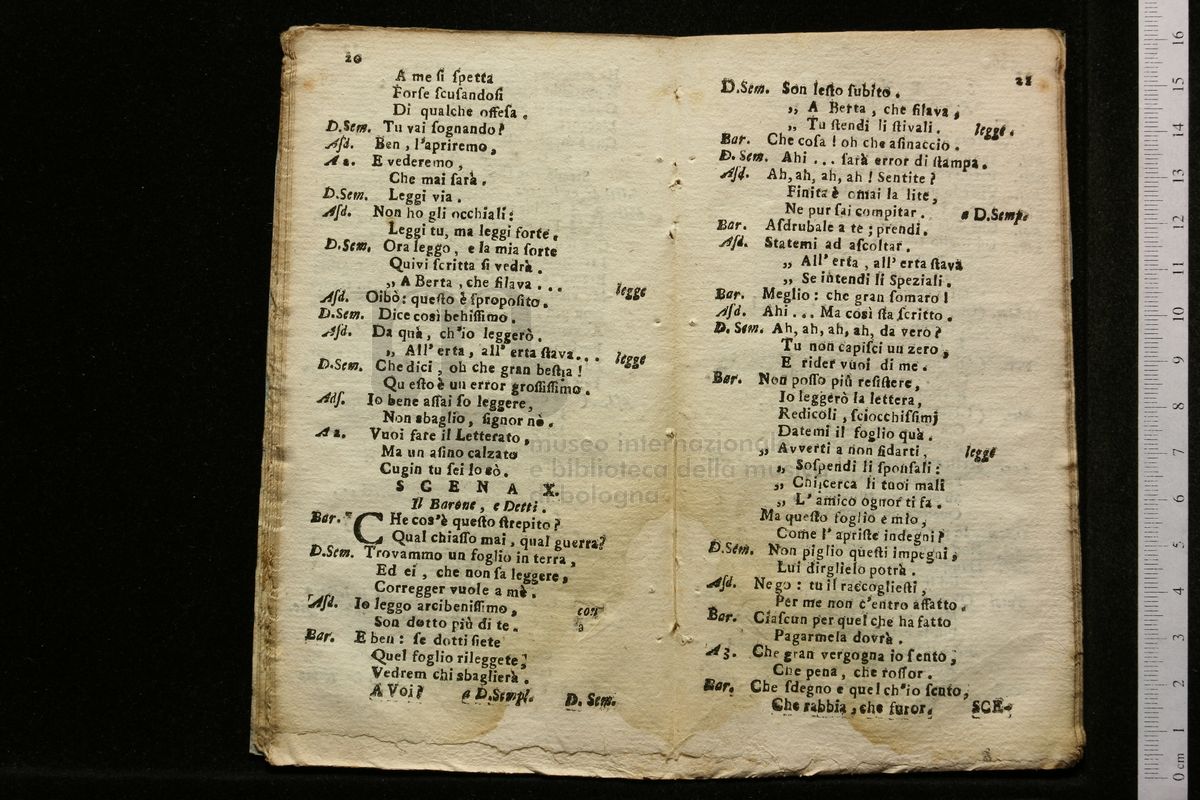 20
A me si spetta
Forse scusandosi
Di qualche offesa.
D.Sem. Tu vai sognando?
Asd. Ben, l'apriremo,
A 2. E vederemo,
Che mai sarà.
D.Sem. Leggi via.
Asd. Non ho gli occhiali:
Leggi tu, ma leggi forte.
D.Sem. Ora leggo, e la mia sorte
Quivi scritta si vedrà.
„ A Berta, che filava... legge
Asd. Oibò: questo è sproposito.
D.Sem. Dice così benissimo.
Asd. Da quà, ch'io leggerò.
„ All' erta, all' erta stava... legge
D.Sem. Che dici, oh che gran bestia!
Qu esto è un error grossissimo.
Ads. Io bene assai so leggere,
Non sbaglio, signor nò.
A 2. Vuoi fare il Letterato,
Ma un asino calzato
Cugin tu sei lo sò.
SCENA X.
Il Barone, e Detti.
Bar. CHe cos'è questo strepito?
Qual chiasso mai, qual guerra?
D.Sem. Trovammo un foglio in terra,
Ed ei, che non sa leggere,
Corregger vuole a mè.
Asd. Io leggo arcibenissimo, con
Son dotto più di te. a
Bar. E ben: se dotti siete
Quel foglio rileggete,
Vedrem chi sbaglierà.
A Voi? a D.Sempl. D. Sem.
21
D.Sem. Son lesto subito.
„ A Berta, che filava,
„ Tu stendi li stivali. legge.
Bar. Che cosa! oh che asinaccio.
D. Sem. Ahi... sarà error di stampa.
Asd. Ah, ah, ah, ah! Sentite?
Finita è omai la lite,
Ne pur sai compitar. a D.Semp.
Bar. Asdrubale a te; prendi.
Asd. Statemi ad ascoltar.
„ All' erta, all' erta stava
„ Se intendi li Speziali.
Bar. Meglio: che gran somaro!
Asd. Ahi... Ma così sta scritto.
D. Sem. Ah, ah, ah, ah, da vero?
Tu non capisci un zero,
E rider vuoi di me.
Bar. Non posso più resistere,
Io leggerò la lettera,
Redicoli, sciocchissimj
Datemi il foglio quà.
„ Avverti a non fidarti, legge
„ Sospendi li sponsali:
„ Chi cerca li tuoi mali
„ L' amico ognor ti fa.
Ma questo foglio e mio,
Come l' apriste indegni?
D.Sem. Non piglio questi impegni,
Lui dirglielo potrà.
Asd. Nego: tu il raccogliesti,
Per me non c'entro affatto.
Bar. Ciascun per quel che ha fatto
Pagarmela dovrà.
A 3. Che gran vergogna io sento,
Che pena, che rossor.
Bar. Che sdegno e quel ch'io sento,
Che rabbia, che furor. SCE-
museo internazionale
e biblioteca della musica
di bologna